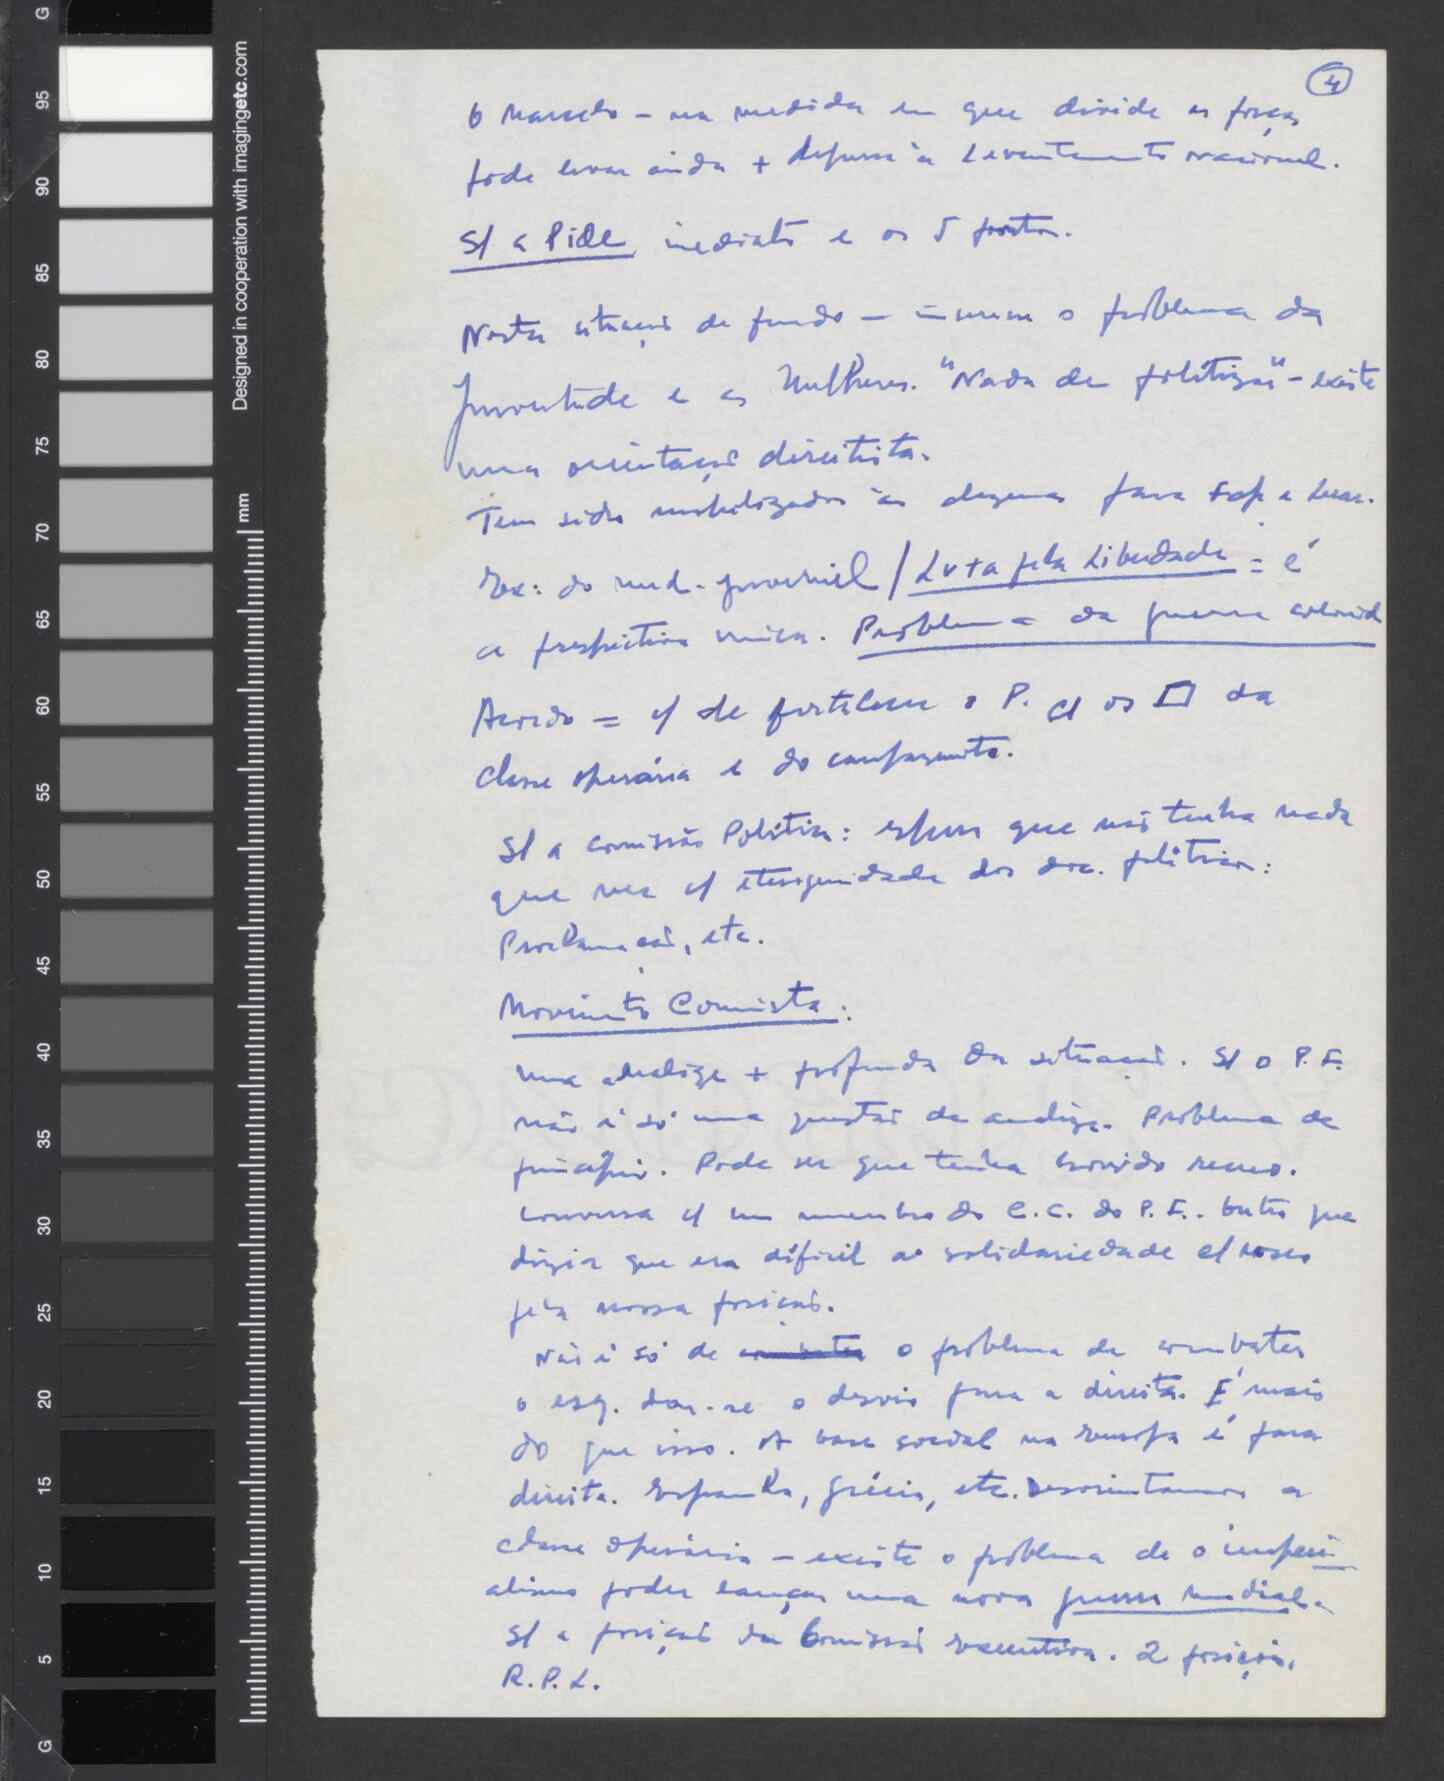 4
O Marcelo - na medida em que divide as forças
pode levar ainda + depressa à Levantamento nacional.
S/ a Pide imediato e os 5 pontos.
Nesta situação de fundo - o problema da
Juventude e as Mulheres. "Nada de politizar" - existe
uma orientação direitista.
Tem sido mobilizados às dezenas para
Ex: do mud. juvenil / Luta pela Liberdade = é
a prespectiva unica. Problema da guerra colonial
Acordo = c/ de fortalecer o P. c/ os □ da
Classe operária e do campesinato.
S/ a comissão Politica: espero que não tenha nada
que ver c/ dos doc. politicos:
Proclamação, etc.
Movimento Comista:
uma analize + profunda da situação. S/ o P.E.
não é só uma questão de analize. Problema de
principio. Pode ser que tenha havido recuo.
Conversa c/ um membro do C.C. do P.E. outro que
dizia que era dificil a solidariedade c/ vosco
pela nossa posição.
Não é só de combater o problema de combater
o esq. dar-se o desvio para a direita. É mais
do que isso. A base social na Europa é para
direita. Espanha, Grécia, etc. Desorientamos a
classe operária - existe o problema de o imperi
alismo poder lançar uma nova guerra mundial.
S/ a posição da Comissão Executiva. 2 posições.
R.P.L.
G
95
90
85
80
75
70
65
60
55
50
45
40
35
30
25
20
15
10
5
G
Designed in cooperation with imagingetc.com
mm